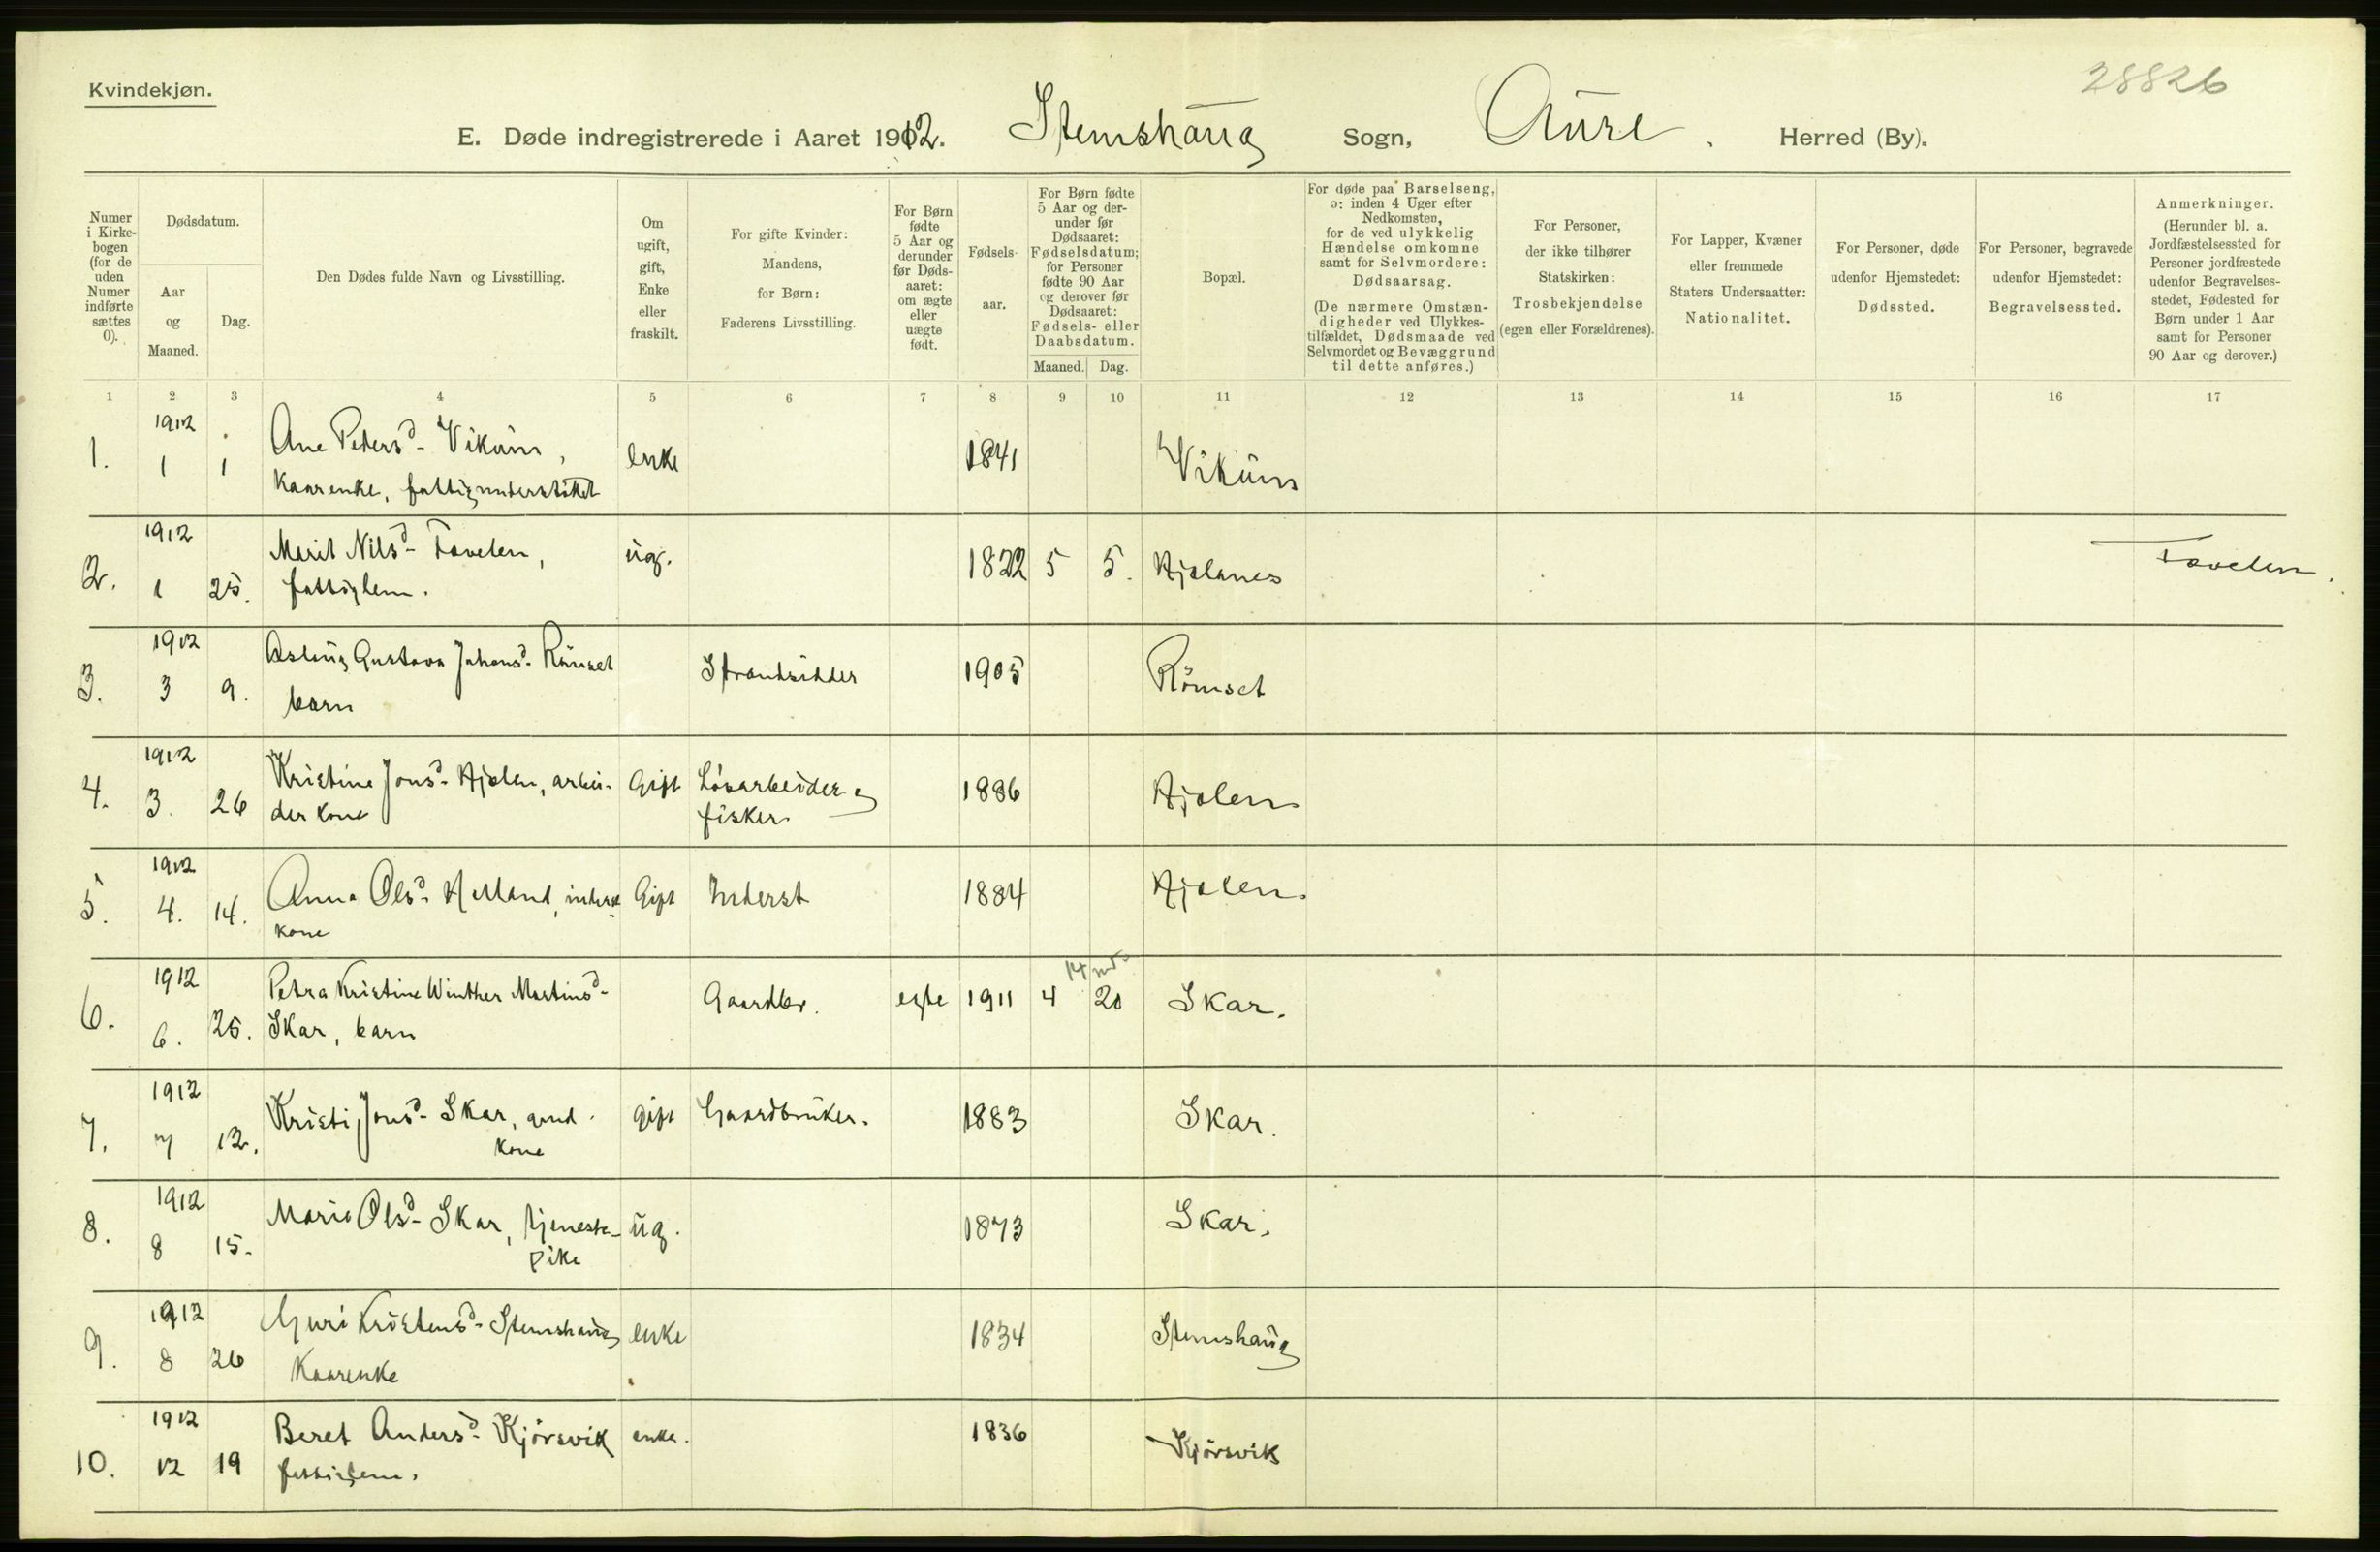 Kvindekjøn.
28826
E. Døde indregistrerede i Aaret 1912. Stemshaug Sogn, Aure. Herred (By).
Numer i Kirke-bogen (for de uden Numer indførte sættes 0).
Dødsdatum.
Aar og Maaned.
Dag.
Den Dødes fulde Navn og Livsstilling.
Om ugift, gift, Enke eller fraskilt.
For gifte Kvinder: Mandens, for Børn: Faderens Livsstilling.
For Børn fødte 5 Aar og derunder før Døds-aaret: om ægte eller uægte født.
Fødsels-aar.
For Børn fødte 5 Aar og der-under før Dødsaaret: Fødselsdatum; for Personer fødte 90 Aar og derover før Dødsaaret: Fødsels- eller Daabsdatum.
Maaned. Dag.
Bopæl.
For døde paa Barselseng, ɔ: inden 4 Uger efter Nedkomsten, for de ved ulykkelig Hændelse omkomne samt for Selvmordere: Dødsaarsag.
(De nærmere Omstæn-digheder ved Ulykkes-tilfældet, Dødsmaade ved Selvmordet og Bevæggrund til dette anføres.)
For Personer, der ikke tilhører Statskirken: Trosbekjendelse (egen eller Forældrenes).
For Lapper, Kvæner eller fremmede Staters Undersaatter: Nationalitet.
For Personer, døde udenfor Hjemstedet: Dødssted.
For Personer, begravede udenfor Hjemstedet: Begravelsessted.
Anmerkninger.
(Herunder bl. a. Jordfæstelsessted for Personer jordfæstede udenfor Begravelses-stedet, Fødested for Børn under 1 Aar samt for Personer 90 Aar og derover.)
1 2 3 4 5 6 7 8 9 10 11 12 13 14 15 16 17
1912
1. 1 1 Ane Petersd- Vikum, enke 1841 Vikum
Kaarenke, fattigunderstöttet
1912
2. 1 25. Marit Nilsd- Tavelen, ug. 1822 5 5. Hjelanes Tavelen.
fattiglem.
1912
3. 3 9. Aslaug Gustava Johansd- Römset Strandsidder 1905 Römset
barn
1912
4. 3. 26 Kristine Jonsd- Hjelen, arbei- Gift Lösarbeider og 1886 Hjelen
der kone fisker
1912
5. 4. 14. Anna Olsd- Helland, inderst Gift Inderst 1884 Hjelen.
kone
1912 14 mdr
6. 6. 25. Petra Kristine Winther Martinsd- Gaardbr. egte 1911 4 20 Skar.
Skar, barn
1912
7. 7 12. Kristi Jonsd- Skar, gmd. gift Gaardbruker. 1883 Skar.
kone
1912
8. 8 15. Marie Olsd- Skar, tjeneste- ug. 1873 Skar.
pike
1912
9. 8 26 Guri Kristensd- Stemshaug enke 1834 Stemshaug
Kaarenke
1912
10. 12 19 Beret Andersd- Kjörsvik enke. 1836 Kjörsvik
fattiglem.